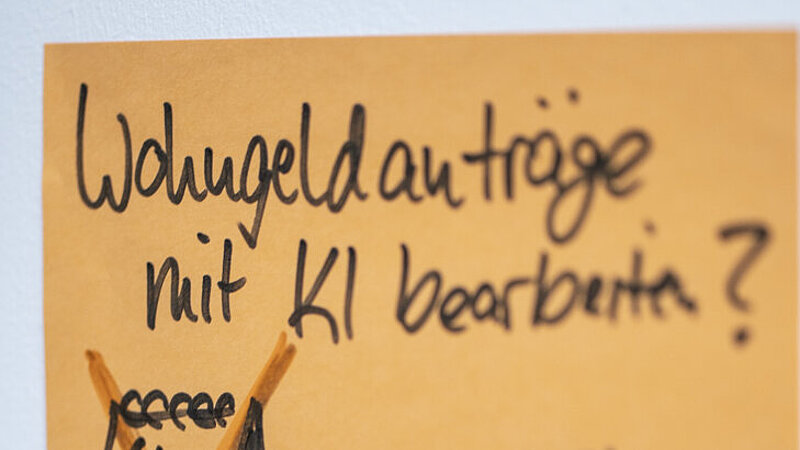 Wohngeldanträge
mit KI bearbeiten?